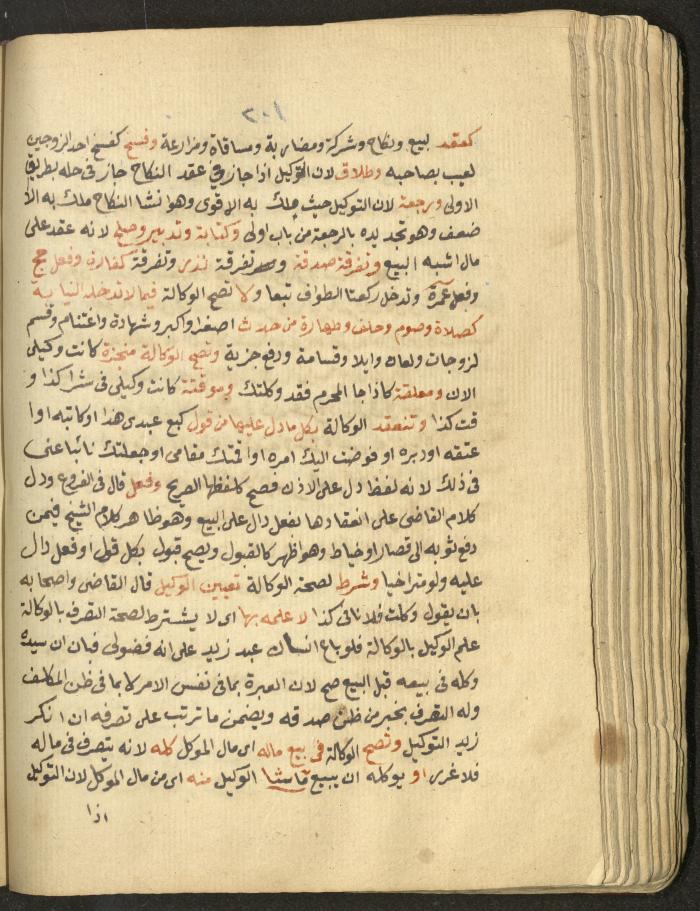 ٢٠١
كعقد بيع ونكاح وشركة ومضاربة ومساقاة ومزارعة وفسخ كفسخ احد الزوجين
لعيب بصاحبه وطلاق لان التوكيل اذا جاز في عقد النكاح جاز في حله بطريق
الاولى ورجعة لان التوكيل حيث ملك به الاقوى وهو انشا النكاح ملك به الا
ضعف وهو تجديده بالرجعة من باب اولى وكتابة وتدبير وصلح لانه عقد على
مال اشبه البيع وتفرقة صدقة وتفرقة نذر وتفرقة كفارة وفعل حج
وفعل عمرة وتدخل ركعتا الطواف تبعا ولا تصح الوكالة فيما لا تدخله النيابة
كصلاة وصوم وحلف وطهارة من حدث اصغر او اكبر وشهادة واغتنام وقسم
لزوجات ولعان وايلا وقسامة ودفع جزية وتصح الوكالة منجزة كانت وكيلي
الان ومعلقة كاذا جا المحرم فقد وكلتك وموقتة كانت وكيلي في شرا كذا و
قت كذا وتنعقد الوكالة بكل ما دل عليها من قول كبع عبدي هذا او كاتبه او ا
عتقه او دبره او فوضت اليك امره او اقمتك مقامي او جعلتك نائبا عني
في ذلك لانه لفظ دل على الاذن فصح كلفظها الصريح وفعل قال في الفروع ودل
كلام القاضي على انعقادها بفعل دال على البيع وهو ظاهر كلام الشيخ فيمن
دفع ثوبه الى قصار او خياط وهو اظهر كالقبول ويصح قبول بكل قول او فعل دال
عليه ولو متراخيا وشرط لصحة الوكالة تعيين الوكيل قال القاضي واصحابه
بان يقول وكلت فلانا في كذا لا علمه بها اي لا يشترط لصحة التصرف بالوكالة
علم الوكيل بالوكالة فلو باع انسان عبد زيد على انه فضولي فبان ان سيده
وكله في بيعه قبل البيع صح لان العبرة بما في نفس الامر لا بما في ظن المكلف
وله التصرف بخبر من ظن صدقه ويضمن ما ترتب على تصرفه ان انكر
زيد التوكيل وتصح الوكالة في بيع ماله اي مال الموكل كله لانه يتصرف في ماله
فلا غرر او يوكله ان يبيع ما شا الوكيل منه اي من مال الموكل لان التوكيل
اذا